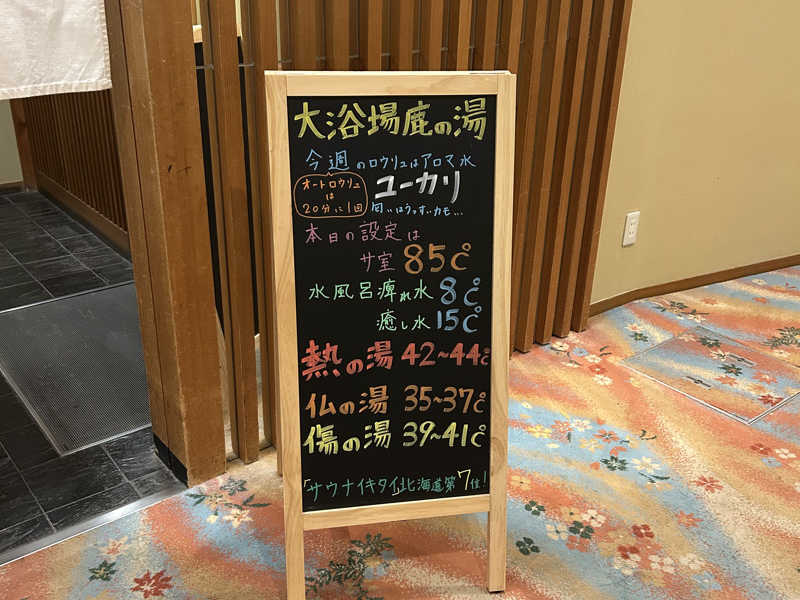 大浴場鹿の湯
今週のロウリュはアロマ水
オートロウリュ
は
20分に1回
ユーカリ
匂いはうっすいかも…
本日の設定は
サ室 85℃
水風呂痺れ水 8℃
癒し水 15℃
熱の湯 42~44℃
仏の湯 35~37℃
傷の湯 39~41℃
「サウナイキタイ」北海道第7位!